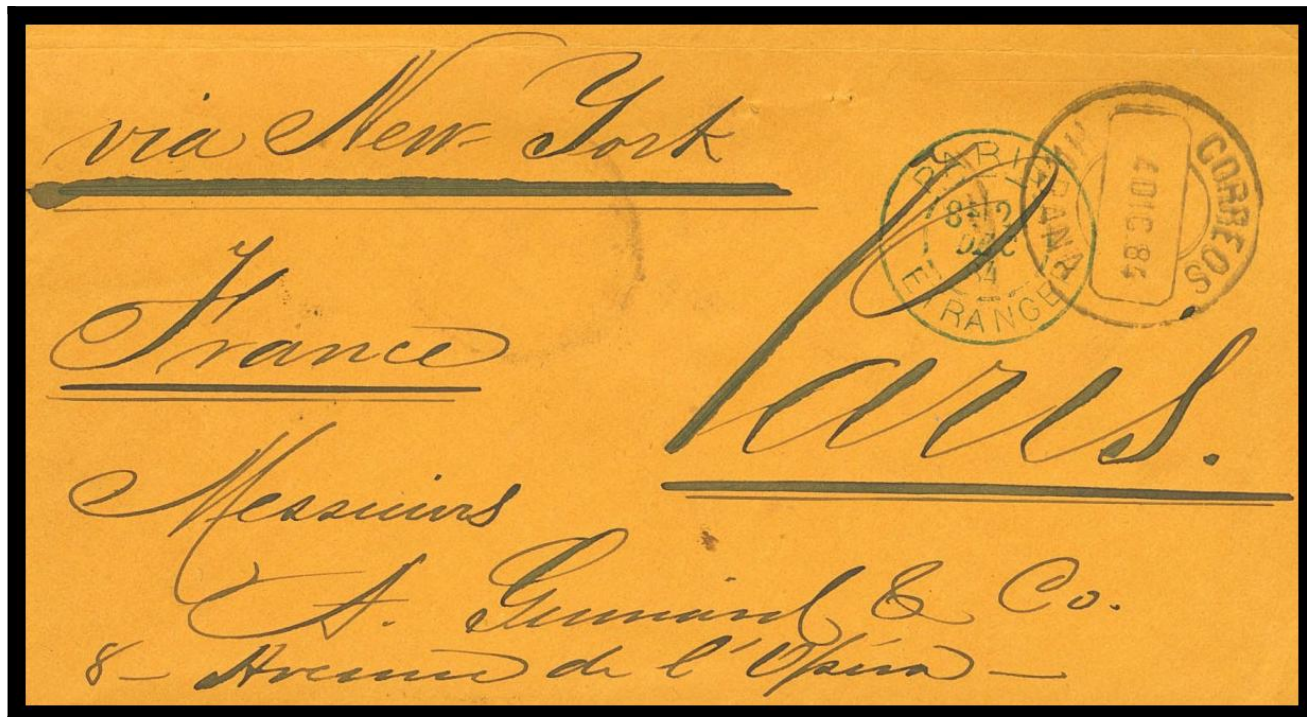 via New York
France
Paris.
Messieurs
A. Guinard & Co.
8 – Avenue de l'Opéra –
PARIS
DEC
84
ETRANGER
CORREOS
4 DIC. 84
HABANA